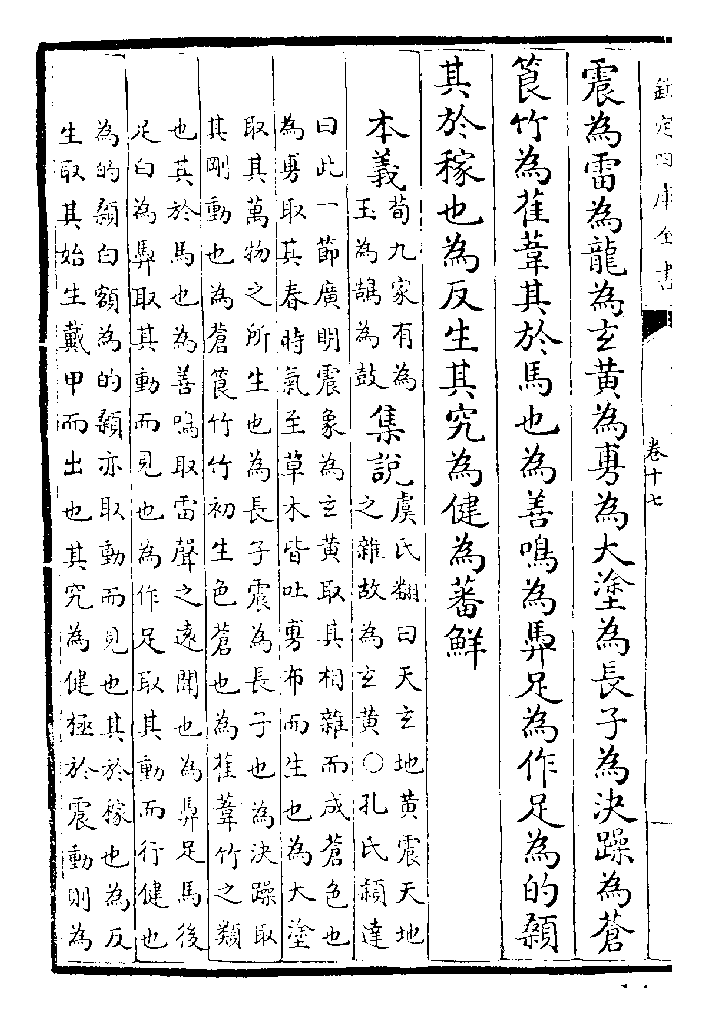 欽定四庫全書
卷十七
震為雷為龍為玄黃為旉為大塗為長子為決躁為蒼
筤竹為萑葦其於馬也為善鳴為馵足為作足為的顙
其於稼也為反生其究為健為蕃鮮
本義
荀九家有為
玉為鵠為鼓
集說
虞氏翻曰天玄地黃震天地
之雜故為玄黃○孔氏穎達
曰此一節廣明震象為玄黃取其相雜而成蒼色也
為旉取其春時氣至草木皆吐旉布而生也為大塗
取其萬物之所生也為長子震為長子也為決躁取
其剛動也為蒼筤竹竹初生色蒼也為萑葦竹之類
也其於馬也為善鳴取雷聲之遠聞也為馵足馬後
足白為馵取其動而見也為作足取其動而行健也
為的顙白額為的顙亦取動而見也其於稼也為反
生取其始生戴甲而出也其究為健極於震動則為